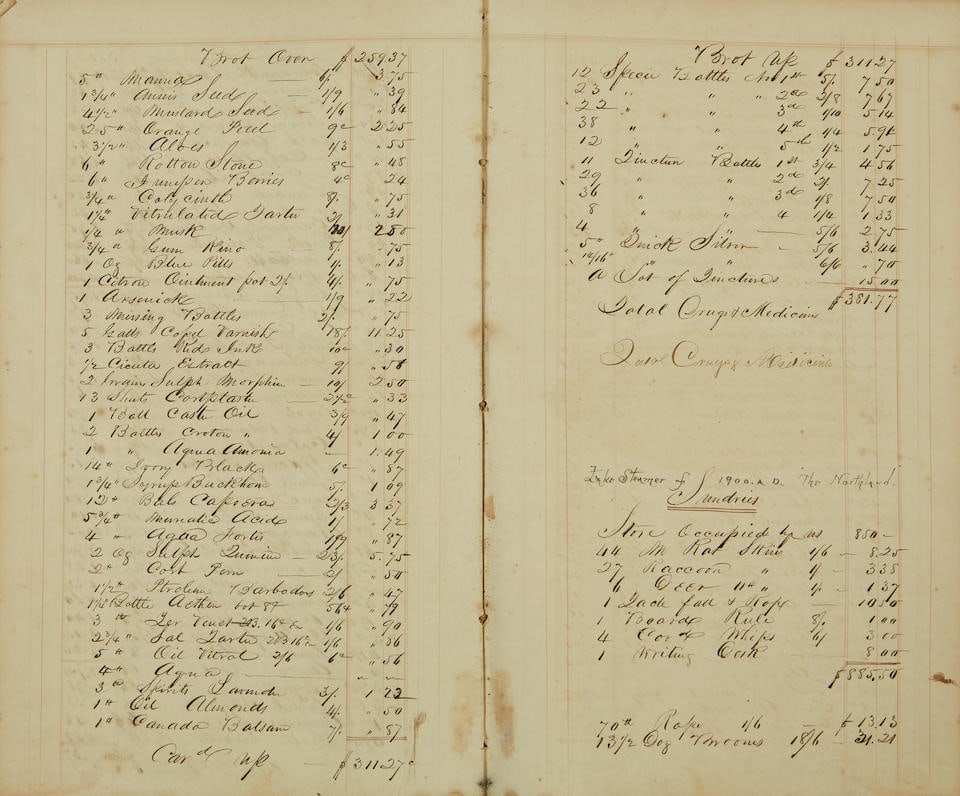 Brot Over $ 259.37
5 " Manna — 6/. 3 75
1 3/4 " Annis Seed — 1/9 " 39
4 1/2 " Mustard Seed — 1/6 " 84
25 " Orange Peel 9c 2 25
3 1/2 " Aloes 1/3 " 55
6 " Rotton Stone 8c " 48
6 " Juniper Berries 4c " 24
3/4 " Colycinth 8/. " 75
1 1/4 " Vitrolated Tarter 2/ " 31
1/4 " Musk 2 50
3/4 " Gum Kino — 8/. " 75
1 Oz Blue Pills 1/. " 13
1 Citron Ointment pot 2/. 4/. " 75
1 Arsenick — 1/9 " 22
3 Nursing Bottles 2/. " 75
5 Galls Copal Varnish 18/. 11 25
3 Bottles Red Ink 10c " 30
1/2 Cicuta Extract 9/ " 56
2 Drams Sulph Morphin — 10/ 2 50
13 Shuts Cortplaster — 2 1/2c " 33
1 Bott Caster Oil 3/9 " 47
2 Bottles Croton " 4/ 1 00
1 " Aqua Amonia — 1.49
14 " Ivory Black 6c " 87
1 3/4 " Syrup Buckthon 5/. 1 09
12 " Bals Capoera 2/3 3 37
5 3/4 " Muriatic Acid 1/ " 72
4 " Aqua Fortis " 87
2 Oz Sulph Quinine — 23/. 5.75
2 " Cort Pem — 2/ " 50
1 1/2 " Ptrolian Barbadoes 2/6 " 47
Bottle Aether
3 " 1/6 " 90
2 3/4 " Sal Tarter 1/6 " 86
5 " Oil Vitral 2/6 6c " 56
4 " Aqua — — " —
3 " Spirits Lavender 3/. 1 22
1 " Oil Almonds 4/. " 50
1 " Canada Balsam 7/. " 87
Card Up — $ 311.27c
Brot Up $ 311.27
12 Specie Bottles No 1st 5/. 7 50
23 " " " 2d 2/8 7 67
22 " " 3d 1/10 5 14
38 " " 4th 1/4 5 94
12 " " 5th 1/2 1 75
11 Tincture Bottles 1st 3/4 4 56
29 " " 2d 2/. 7.25
36 " " 3d 1/8 7 50
8 " " 4 1/4 1 33
4 " " — 5/6 2 75
5 " Quick Silver — 5/6 3.44
" 6/6 " 70
A Lot of Tinctures — 15.00
$ 381.77
Total Drugs & Medicins
Total Drugs & Medicins
Lake Steamer of 1900. A.D. "The Northland."
Sundries
Store Occupied by us 850 —
44 M Rat Skins 1/6 — 8.25
27 Raccoon " 1/ — 3 38
6 Deer " 1/. — 1 37
1 Jack fall & Rope — 10 50
1 Board Rule 8/. 1 00
4 Cord Whips 6/ 3 00
1 Writing Desk — 8 00
$ 885.50
70 " Rope 1/6 — $ 13.13
13 1/2 Doz Brooms 18/6 — 31.21